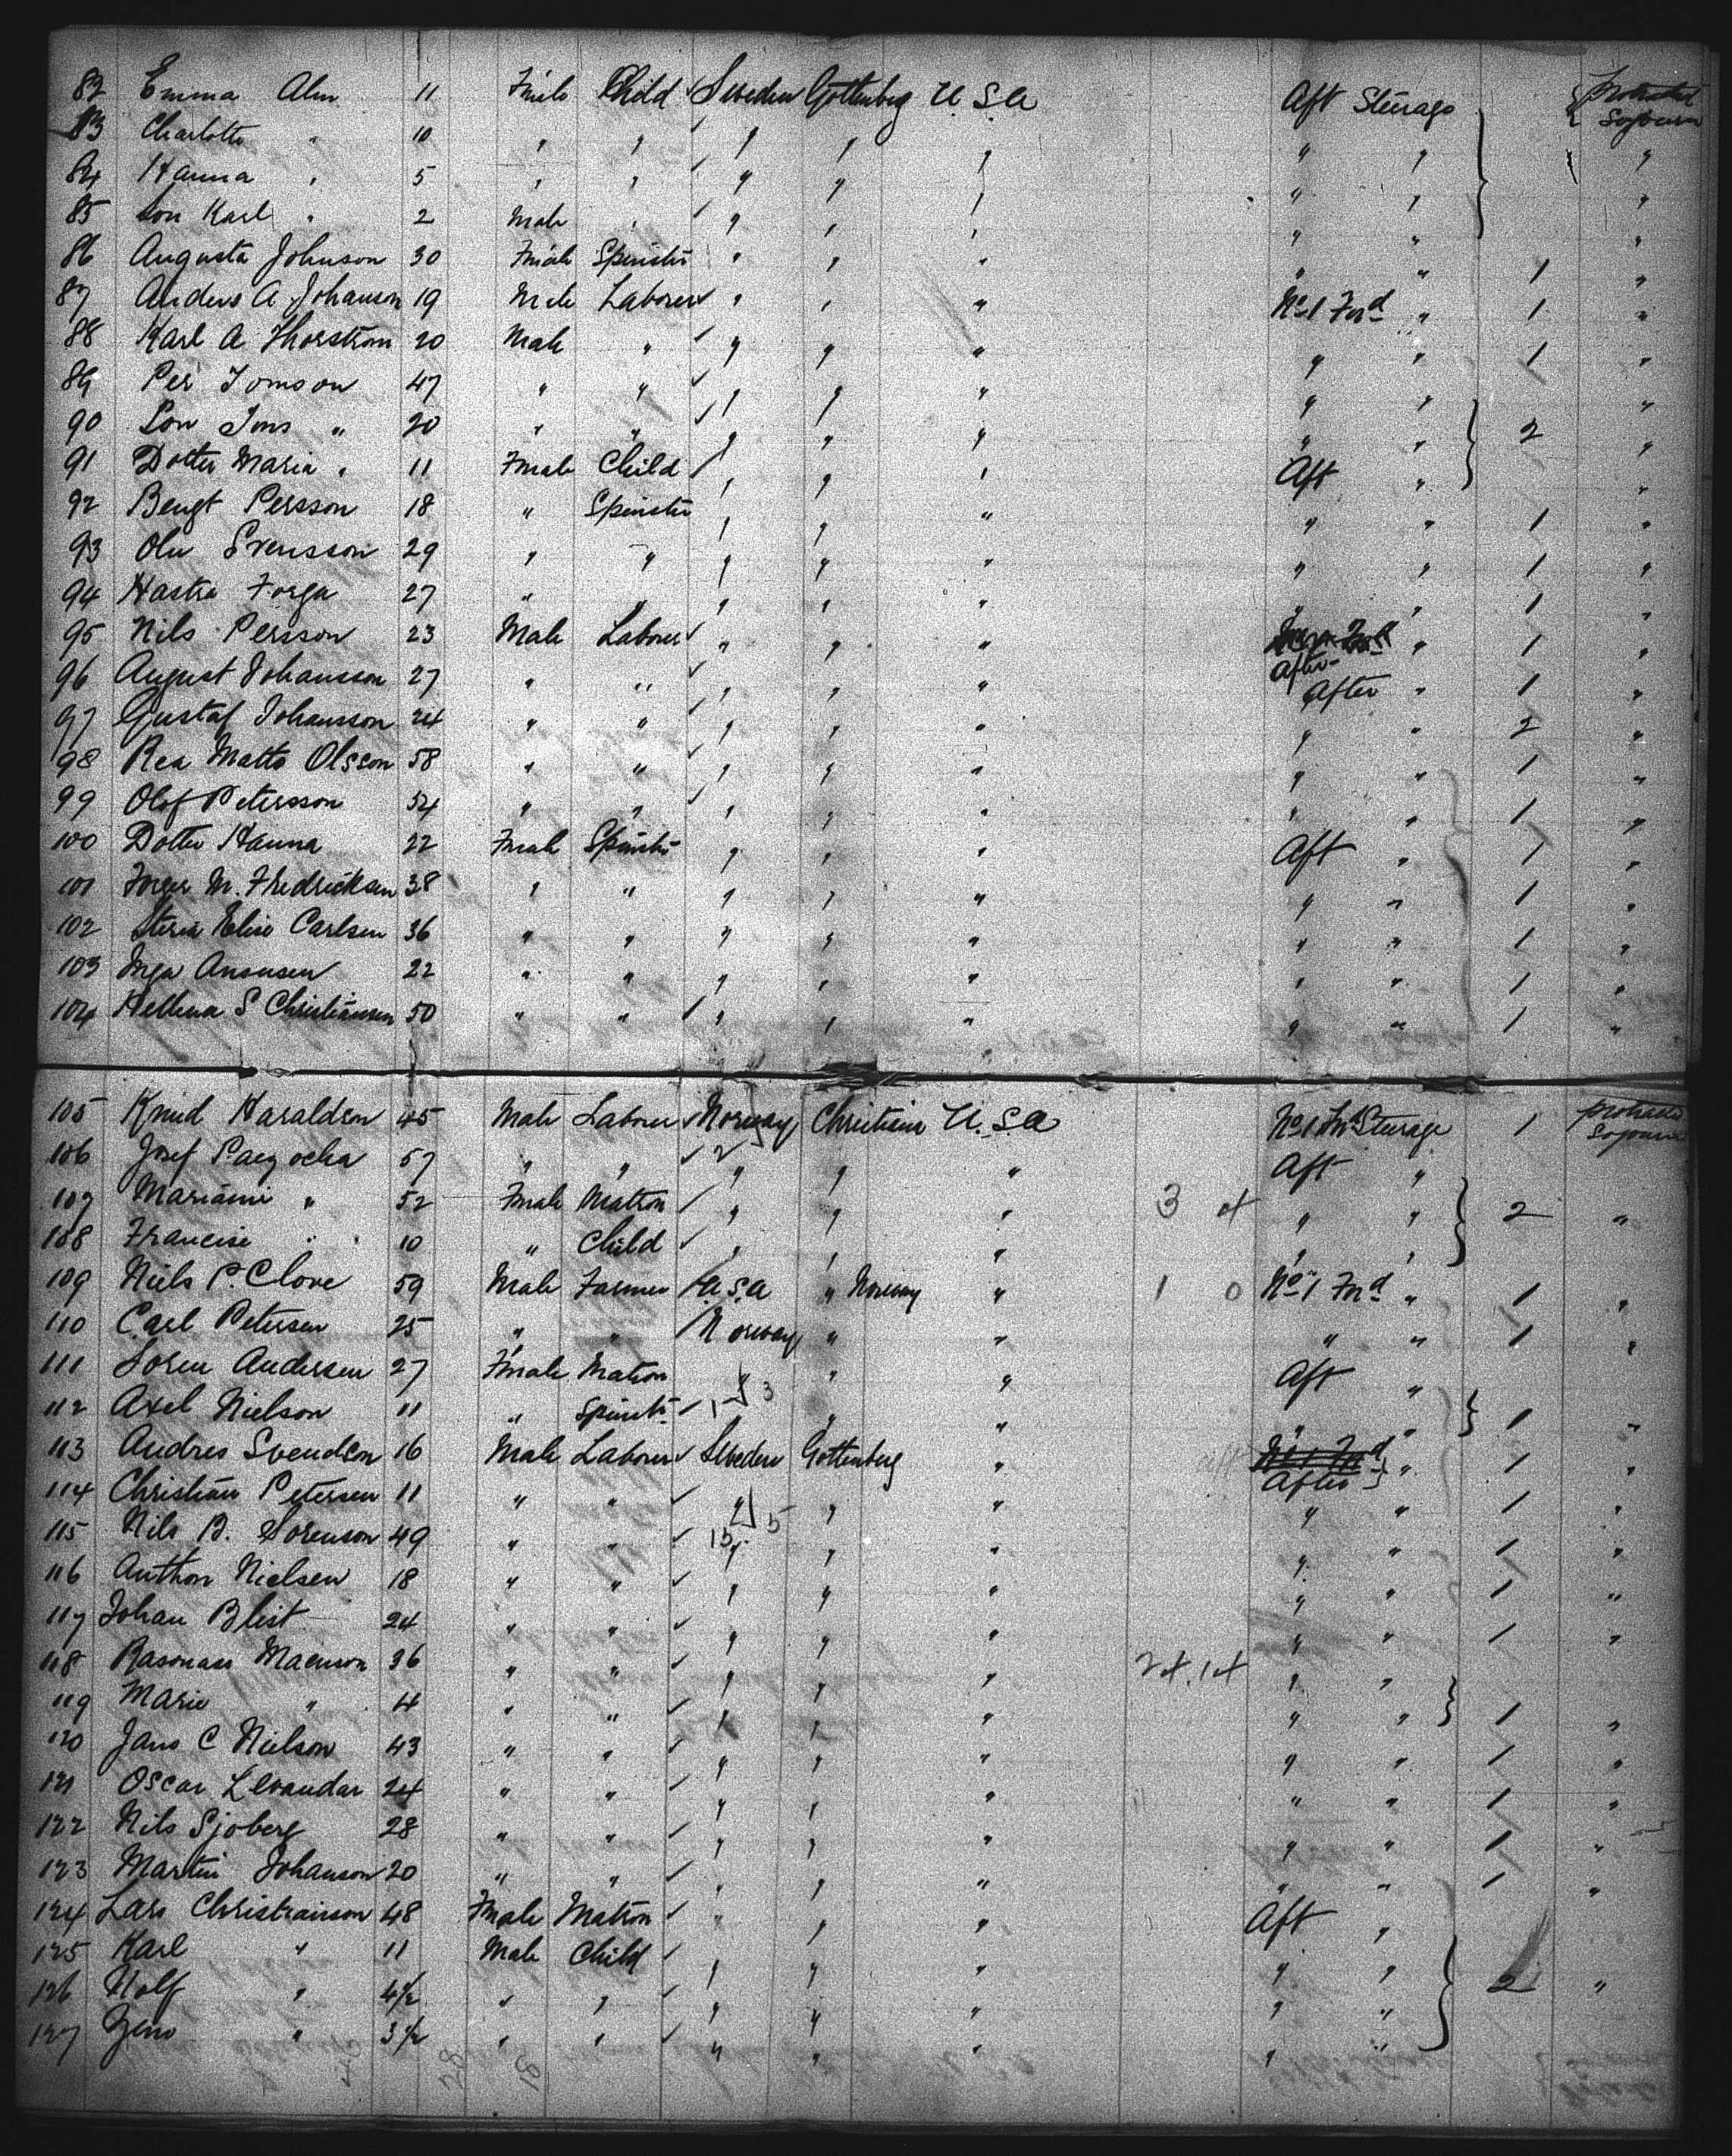 82 Emma Alm 11 Fmale Child Sweden Gottenberg U.S.A Aft Steerage Protracted Sojourn
83 Charlotte " 10 " " " " " " " "
84 Hanna " 5 " " " " " " " "
85 Son Karl " 2 Male " " " " " " "
86 Augusta Johnson 30 Fmale Spinster " " " " " 1 "
87 Anders A Johanson 19 Male Laborer " " " No 1 Fwd " 1 "
88 Karl A Thorstrom 20 Male " " " " " " 1 "
89 Per Tomson 47 " " " " " " " "
90 Son Jms " 20 " " " " " " " 2 "
91 Dotter Maria " 11 Fmale Child " " " Aft " "
92 Bengt Persson 18 " Spinster " " " " " 1 "
93 Olu Svensson 29 " " " " " " " 1 "
94 Hastra Forga 27 " " " " " " " 1 "
95 Nils Persson 23 Male Laborer " " " After " 1 "
96 August Johansson 27 " " " " " After " 1 "
97 Gustaf Johansson 24 " " " " " " " 2 "
98 Rea Matts Olsson 58 " " " " " " " 1 "
99 Olof Petersson 54 " " " " " " " 1 "
100 Dotter Hanna 22 Fmale Spinster " " " Aft " 1 "
101 Inger M. Fredricksen 38 " " " " " " " 1 "
102 Elise Carlsen 36 " " " " " " " 1 "
103 Inga Ansusen 22 " " " " " " " 1 "
104 Hellena S Christiansen 50 " " " " " " " 1 "
105 Knud Haraldsen 45 Male Laborer Norway Christiana U.S.A No 1 Fwd Sterage 1 protracted Sojourn
106 Josef Paczocha 57 " " 2 " " " Aft "
107 Marianni " 52 Fmale Matron " " " 3 4 " " 2 "
108 Francise " 10 " Child " " " " "
109 Niels P. Clove 59 Male Farmer U.S.A " Norway " 1 0 No 1 Fwd " 1 "
110 Carl Petersen 25 " " Norway " " " " 1 "
111 Soren Andersen 27 Fmale Matron " " " Aft "
112 Axel Nielson 11 " Spinster 1 3 " " " " 1 "
113 Andres Svendson 16 Male Laborer Sweden Gottenberg " aft No 1 Fwd After " 1 "
114 Christian Petersen 11 " " " " " " " 1 "
115 Nils B. Sorenson 49 " " 15 5 " " " " " 1 "
116 Anthon Nielsen 18 " " " " " " " 1 "
117 Johan Blist 24 " " " " " " " 1 "
118 Rasmuss Maenson 36 " " " " " 24.14 " "
119 Marie " 4 " " " " " " " 1 "
120 Jans C Nielson 43 " " " " " " " 1 "
121 Oscar Levandar 24 " " " " " " " 1 "
122 Nils Sjoberg 28 " " " " " " " 1 "
123 Martin Johanson 20 " " " " " " " 1 "
124 Lars Christianson 48 Fmale Matron " " " Aft "
125 Karl " 11 Male Child " " " " "
126 Holf " 4½ " " " " " " " 2 "
127 " 3½ " " " " " " "
28 18